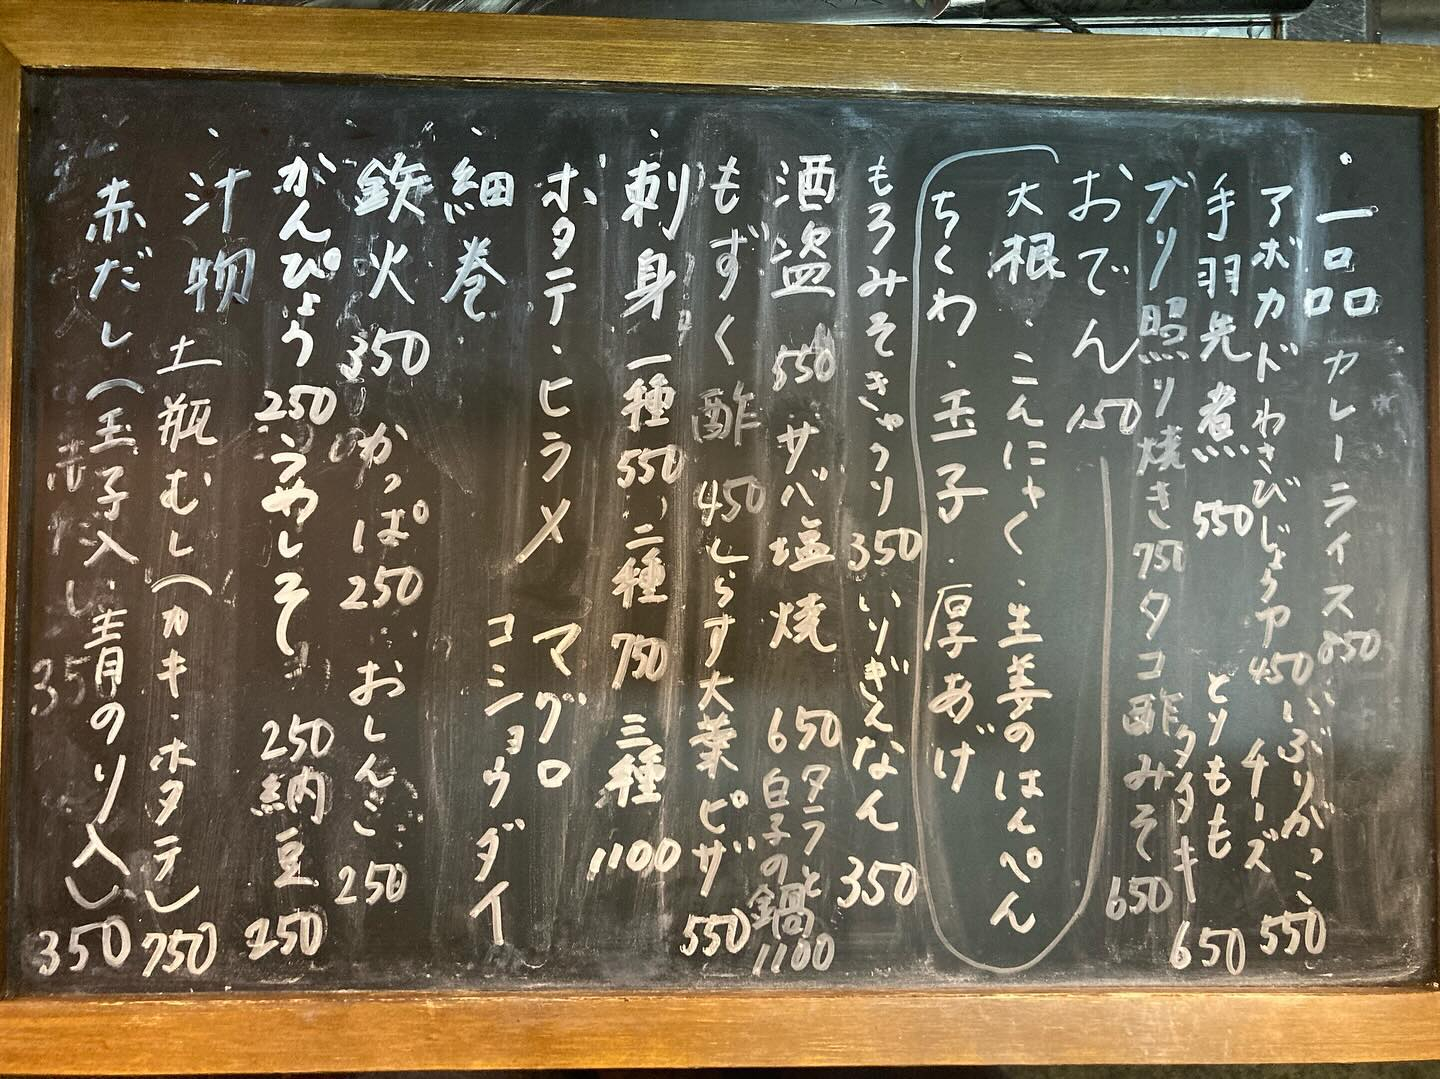 ・一品 カレーライス 850 いぶりがっこ
アボカドわさびじょうゆ 450 チーズ 550
手羽先煮 550 とりももタタキ 650
ブリ照り焼き 750 タコ酢みそ 650
おでん 150
大根・こんにゃく・生姜のはんぺん
ちくわ・玉子・厚あげ
もろみそきゅうり 350 いりぎんなん 350
酒盗 550 サバ塩焼 650 タラと白子の鍋 1100
もずく酢 450 しらす大葉ピザ 550
・刺身 一種 550 二種 750 三種 1100
ホタテ・ヒラメ マグロ
コショウダイ
・細巻
鉄火 350 かっぱ 250 おしんこ 250
かんぴょう 250 うめしそ 250 納豆 250
・汁物
土瓶むし(カキ・ホタテ) 750
赤だし(玉子入い青のり入) 350